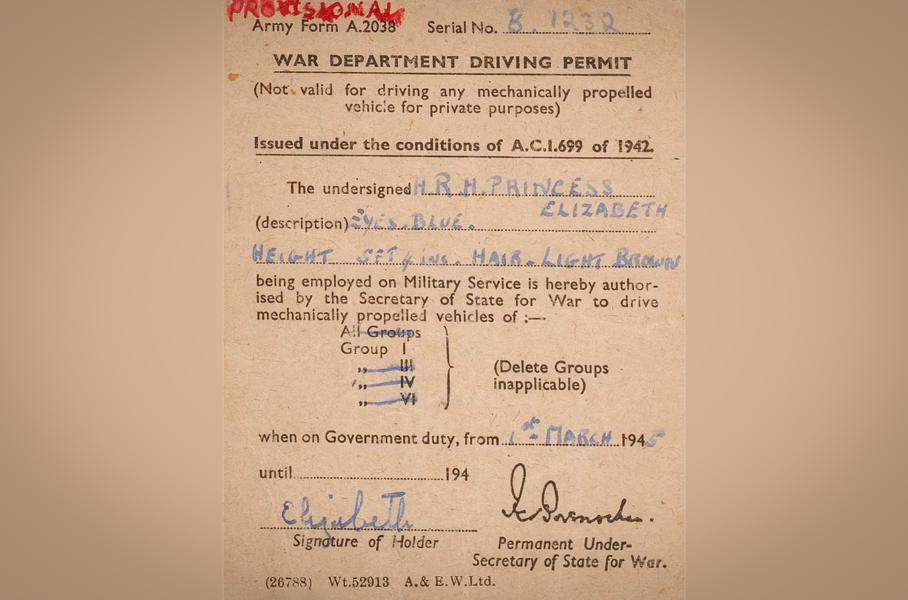 PROVISIONAL
Army Form A.2038 Serial No. B. 1232
WAR DEPARTMENT DRIVING PERMIT
(Not valid for driving any mechanically propelled
vehicle for private purposes)
Issued under the conditions of A.C.I.699 of 1942.
The undersigned H.R.H. PRINCESS
ELIZABETH
(description) EYES. BLUE.
HEIGHT 5FT 4 ins. HAIR. LIGHT BROWN
being employed on Military Service is hereby author-
ised by the Secretary of State for War to drive
mechanically propelled vehicles of :—
All Groups
Group I
„ III
„ IV
„ VI
(Delete Groups
inapplicable)
when on Government duty, from 1st MARCH 1945
until 194
Elizabeth
Signature of Holder
Permanent Under-
Secretary of State for War.
(26788) Wt.52913 A.& E.W.Ltd.